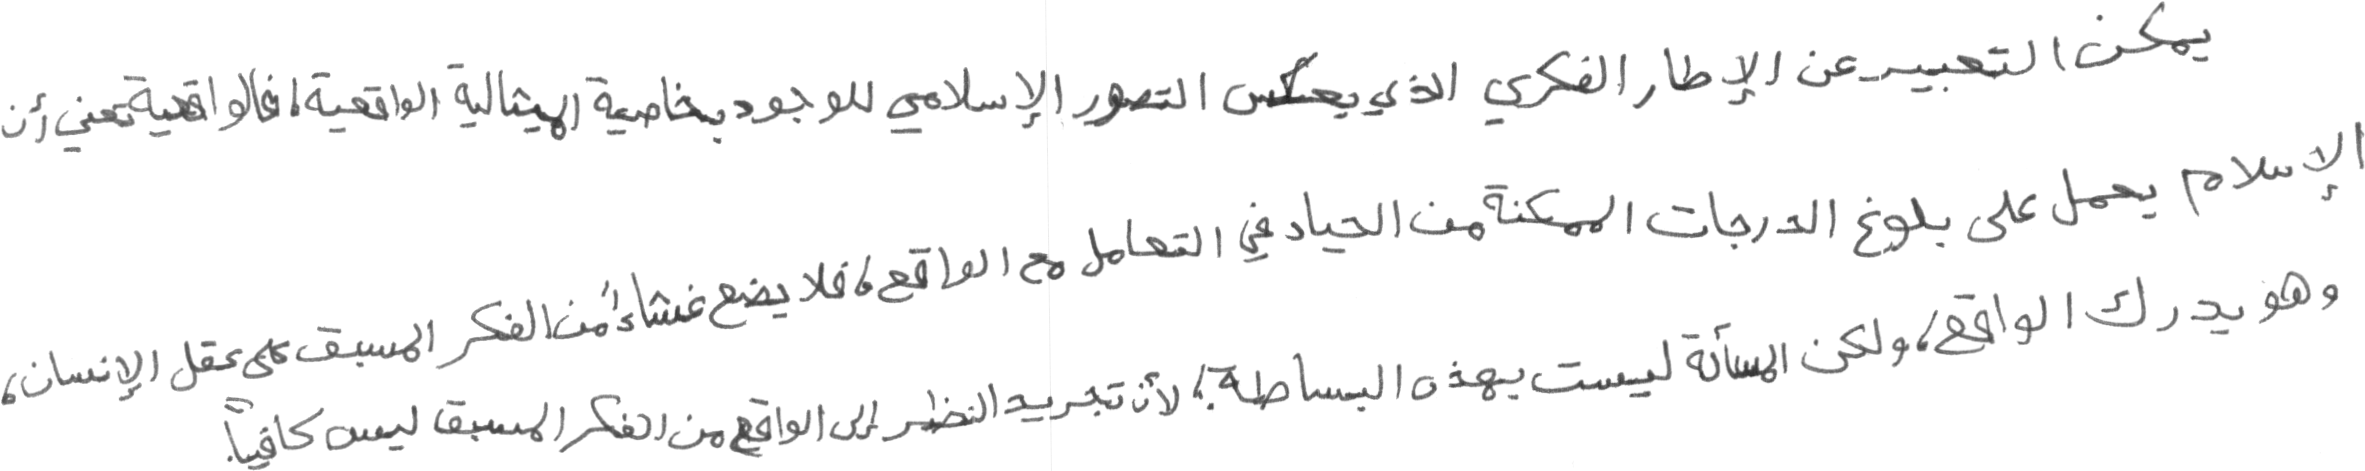 يمكن التعبير عن الإطار الفكري الذي يعكس التصور الإسلامي للوجود بخاصية المثالية الواقعية، فالواقعية تعني أن
الإسلام يعمل على بلوغ الدرجات الممكنة من الحياد في التعامل مع الواقع، فلا يضع غشاءً من الفكر المسبق على عقل الإنسان،
وهو يدرك الواقع، ولكن المسألة ليست بهذه البساطة؛ لأن تجريد النظر إلى الواقع من الفكر المسبق ليس كافياً.